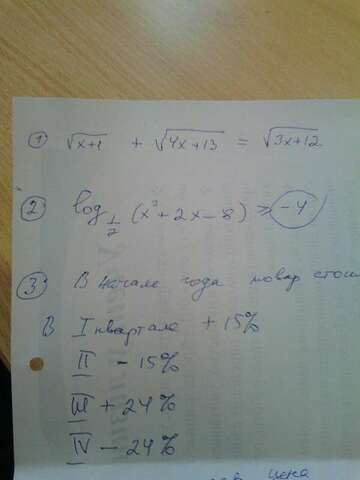 ① √x+1 + √4x+13 = √3x+12
② log_{1/2} (x² + 2x - 8) ≥ -4
③ В начале года товар стои
В I квартале + 15%
II - 15%
III + 24%
IV - 24%
цена